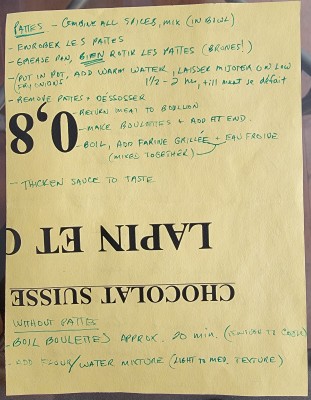 PATTES - COMBINE ALL SPICES, MIX (IN BOWL)
- ENROBER LES PATTES
- GREASE PAN, BIEN ROTIR LES PATTES (BRUNES!)
- PUT IN POT, ADD WARM WATER, LAISSER MIJOTER ON LOW
FRY ONIONS 1½ - 2 hr, till meat se défait
- REMOVE PATTES + DÉSOSSER
- RETURN MEAT TO BOUILLON
- MAKE BOULETTES & ADD AT END.
- BOIL, ADD FARINE GRILLÉE + EAU FROIDE
(MIXED TOGETHER)
0,8
- THICKEN SAUCE TO TASTE
LAPIN ET
CHOCOLAT SUISSE
WITHOUT PATTES
- BOIL BOULETTES APPROX. 20 min. (
- ADD FLOUR/WATER MIXTURE (LIGHT TO MED. TEXTURE)